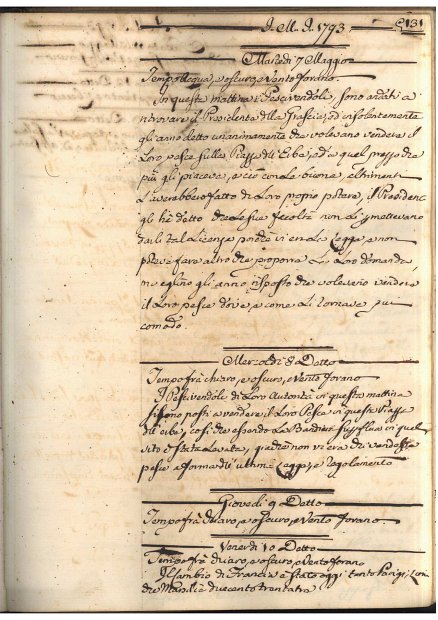 A. M. D. 1793
131
Martedì 7 Maggio
Tempo Acqua, e oscuro, e Vento forano.
In questa mattina i Pescivendoli, sono andati a
ritrovare il Presidente della Grascia, ed insolentemente
gli anno detto unanimamente che volevano vendere il
Loro pesce sulla Piazza dell'Erbe, ed a quel prezzo che
più gli piaceva, e ciò con le buone, altrimenti
L'averebbero fatto di Loro proprio potere, il Presidente
gli hà detto che le sue facoltà non Li permettevano
darli tal Licenza perche vi era la Legge, e non
poteva fare altro che proporre La Loro domanda,
ma eglino gli anno risposto che volevano vendere
il Loro pesce dove, e come Li tornava più
comodo.
Mercoldì 8 Detto
Tempo frà chiaro, e oscuro, e Vento forano
I Pescivendoli di Loro Autorità in questa mattina
si sono posti a vendere il Loro Pesce in questa Piazza
dell'Erbe, così che essendo La Bandiera in quel
sito è stata Levata, giache non vi era di vendersi
pesce a forma dell'ultima Legge, e regolamento
Giovedì 9 Detto
Tempo frà chiaro, e oscuro, e Vento forano.
Venerdì 10 Detto
Tempo frà chiaro, e oscuro, e Vento forano
Il Cambio di Francia è stato oggi tanto Parigi, Co-
me Marsilia duecento trentatre